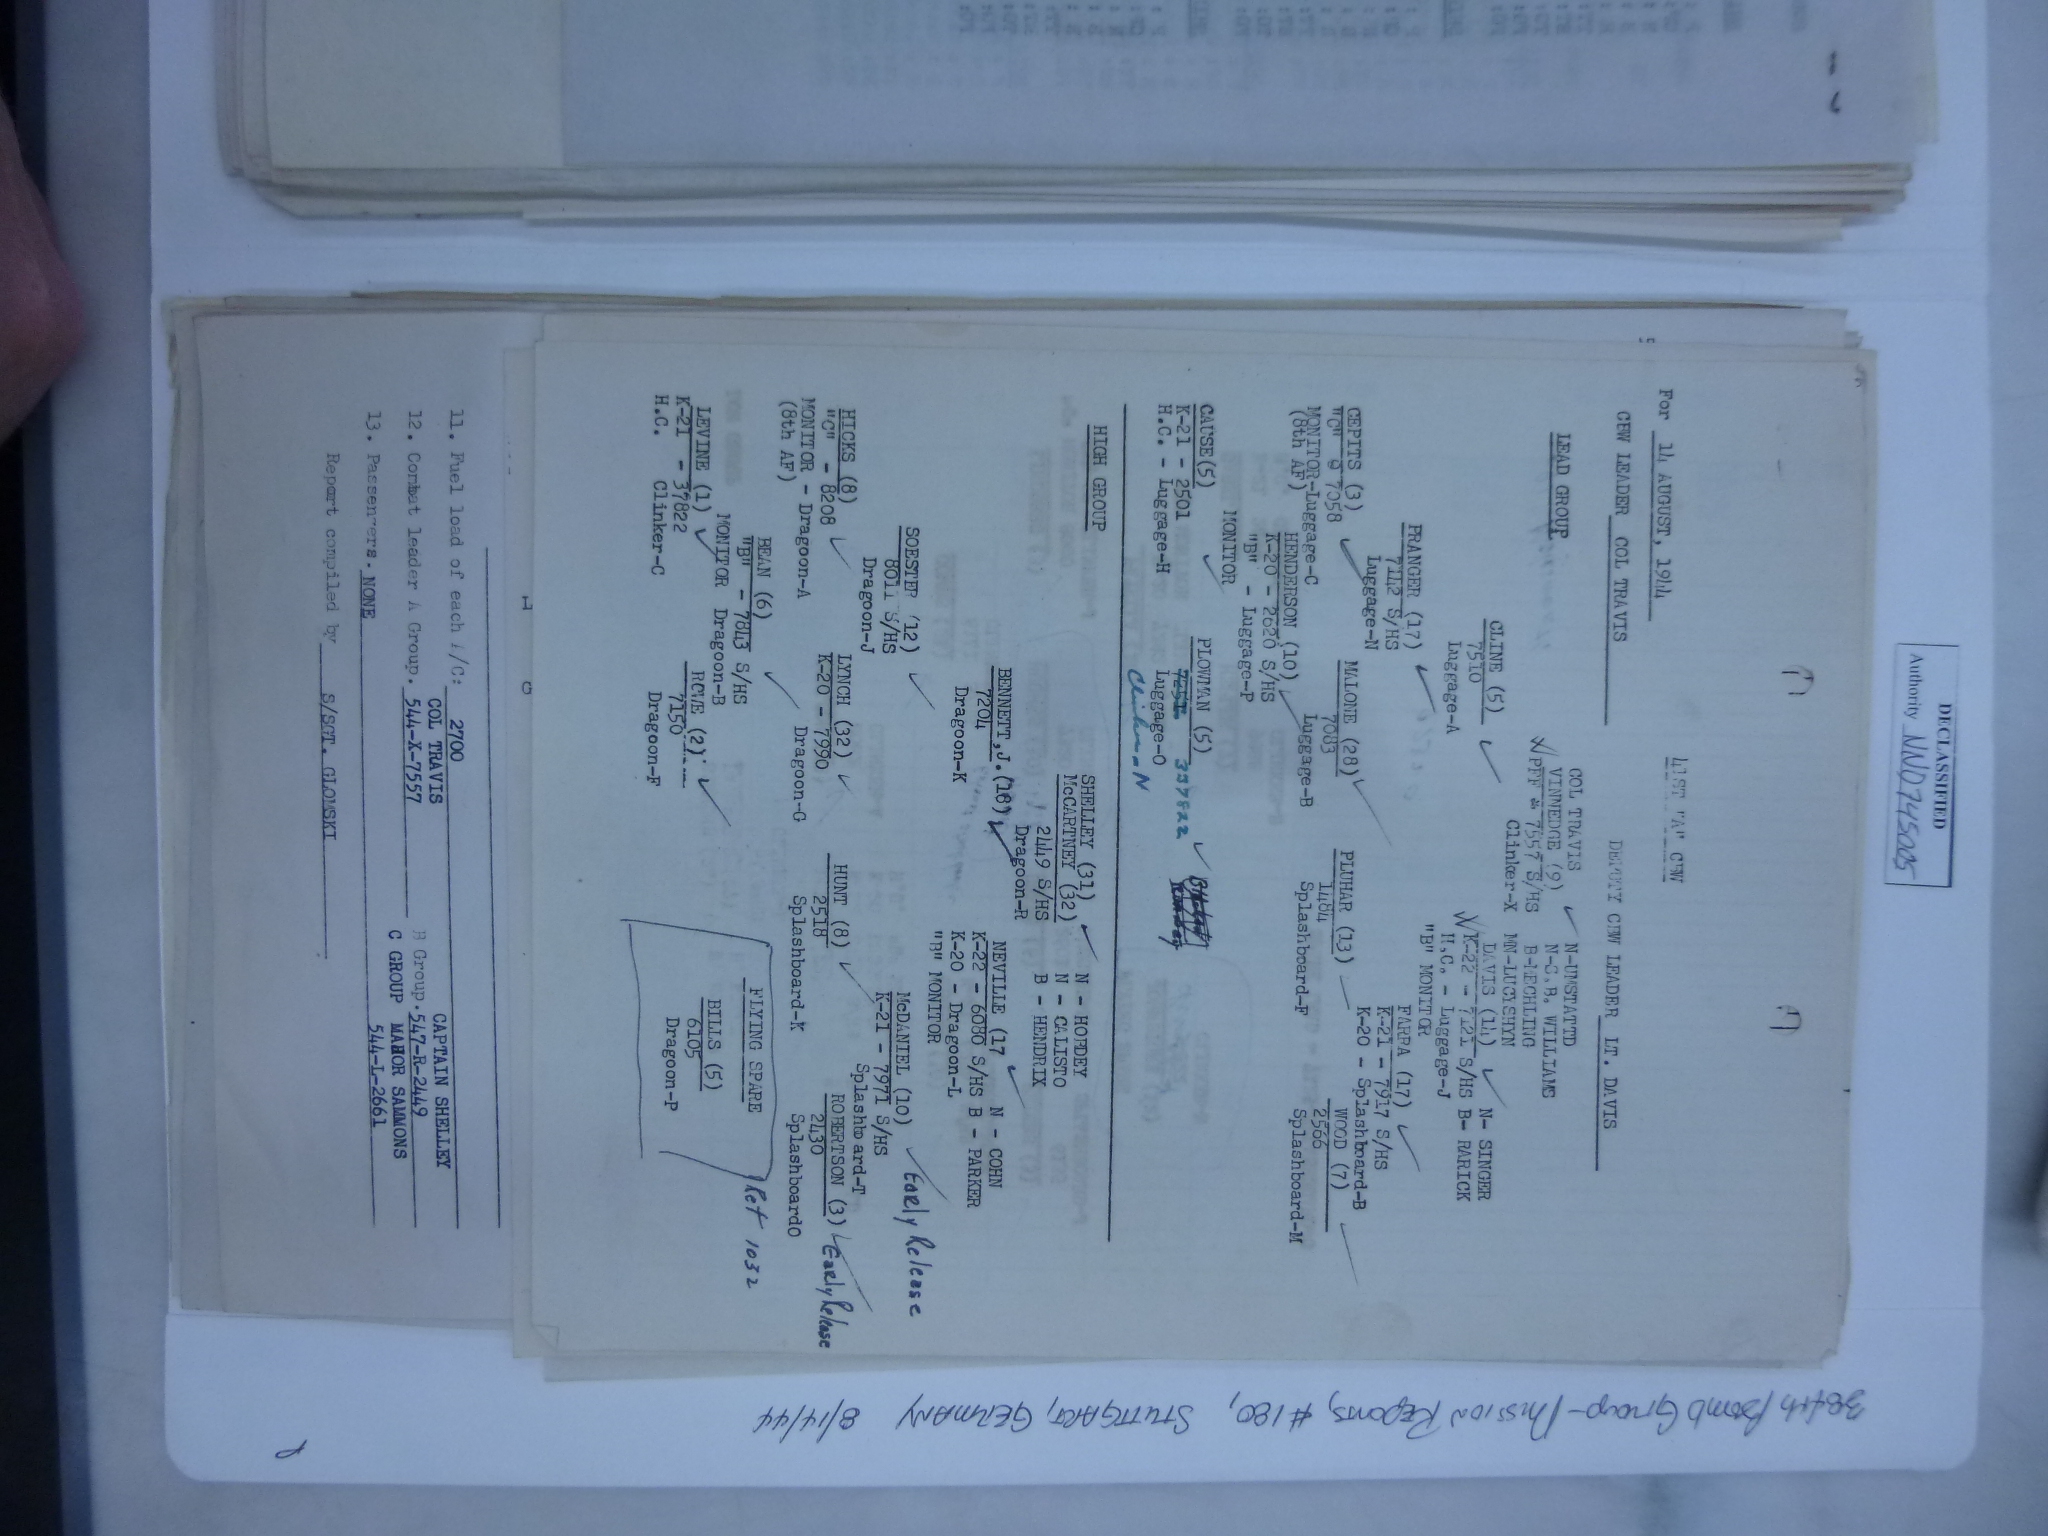 DECLASSIFIED
Authority NND745005
For 14 AUGUST, 1944
41ST CBW
CBW LEADER COL TRAVIS
DEPUTY CBW LEADER LT. DAVIS
LEAD GROUP
COL TRAVIS
VINNEDGE (9)
PFF - 7557 S/HS
Clinker-X
N-UMSTATTD
N-C.B. WILLIAMS
B-MECHLING
MN-LUCYSHYN
CLINE (5)
7510
Luggage-A
DAVIS (14)
K-22 - 7121 S/HS
H.C. - Luggage-J
"B" MONITOR
N- SINGER
B- RARICK
FRANGER (17)
7142 S/HS
Luggage-N
FARRA (17)
K-21 - 7917 S/HS
K-20 - Splashboard-B
CEPITS (3)
"C" - 7058
MONITOR-Luggage-C
(8th AF)
MALONE (28)
7083
Luggage-B
PLUHAR (13)
1484
Splashboard-F
WOOD (7)
2566
Splashboard-M
HENDERSON (10)
K-20 - 2620 S/HS
"B" - Luggage-P
MONITOR
CAUSE(5)
K-21 - 2501
H.C. - Luggage-H
PLOWMAN (5)
337822
Luggage-O
Clinker-N
HIGH GROUP
SHELLEY (31)
McCARTNEY (32)
2449 S/HS
Dragoon-R
N - HOEDEY
N - CALISTO
B - HENDRIX
BENNETT,J.(16)
7204
Dragoon-K
NEVILLE (17
K-22 - 6080 S/HS
K-20 - Dragoon-L
"B" MONITOR
N - COHN
B - PARKER
SOESTER (12)
8011 S/HS
Dragoon-J
McDANIEL (10)
K-21 - 7971 S/HS
Splashboard-T
Early Release
HICKS (8)
"C" - 8208
MONITOR - Dragoon-A
(8th AF)
LYNCH (32)
K-20 - 7990
Dragoon-G
HUNT (8)
2518
Splashboard-K
ROBERTSON (3)
2430
SplashboardO
Early Release
BEAN (6)
"B" - 7843 S/HS
MONITOR Dragoon-B
LEVINE (1)
K-21 - 37822
H.C. Clinker-C
ROVE (2)
7150
Dragoon-F
FLYING SPARE
BILLS (5)
6105
Dragoon-P
Ret 1032
11. Fuel load of each A/C: 2700
COL TRAVIS
CAPTAIN SHELLEY
12. Combat leader A Group. 544-X-7557
B Group. 547-R-2449
C GROUP MAJOR SAMMONS
13. Passengers. NONE
544-L-2661
Report compiled by S/SGT. GLOMSKI
384th Bomb Group - Mission Reports, #180, STUTTGART, GERMANY 8/14/44